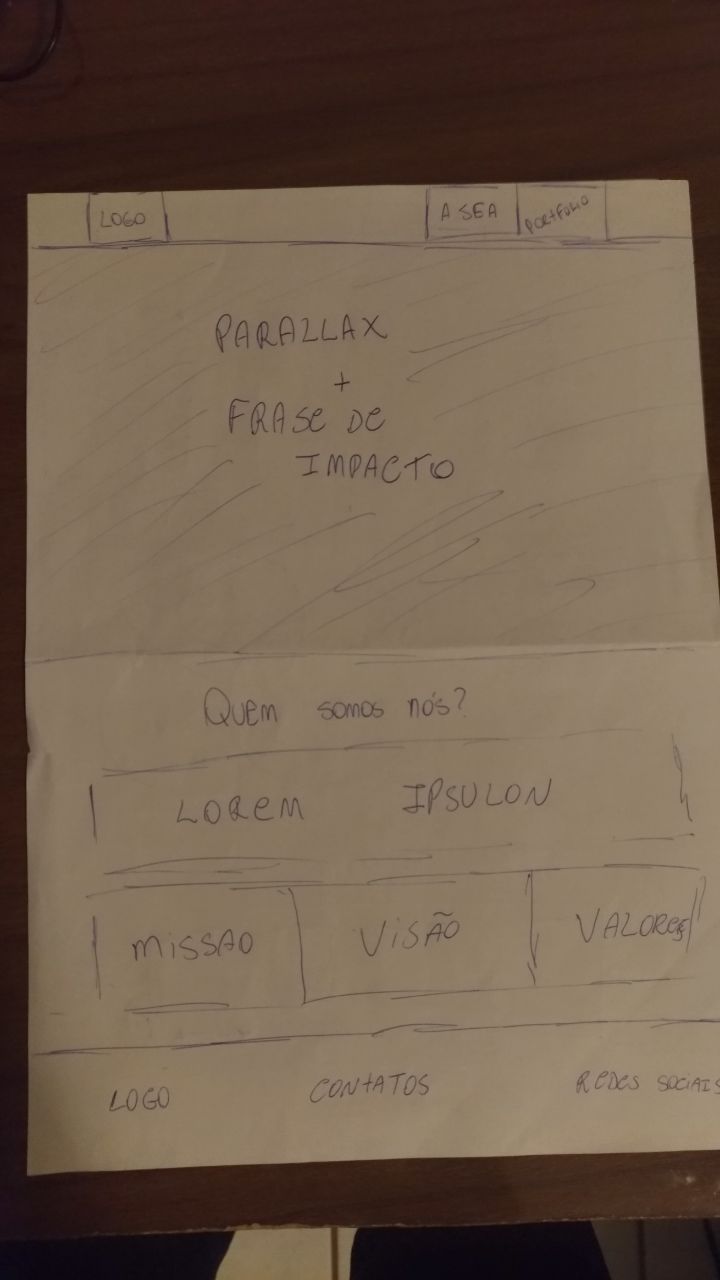 LOGO
A SEA
PORTFOLIO
PARALLAX
+
FRASE DE
IMPACTO
QUEM SOMOS NÓS?
LOREM IPSULON
MISSAO
VISÃO
VALORES
LOGO
CONTATOS
REDES SOCIAIS